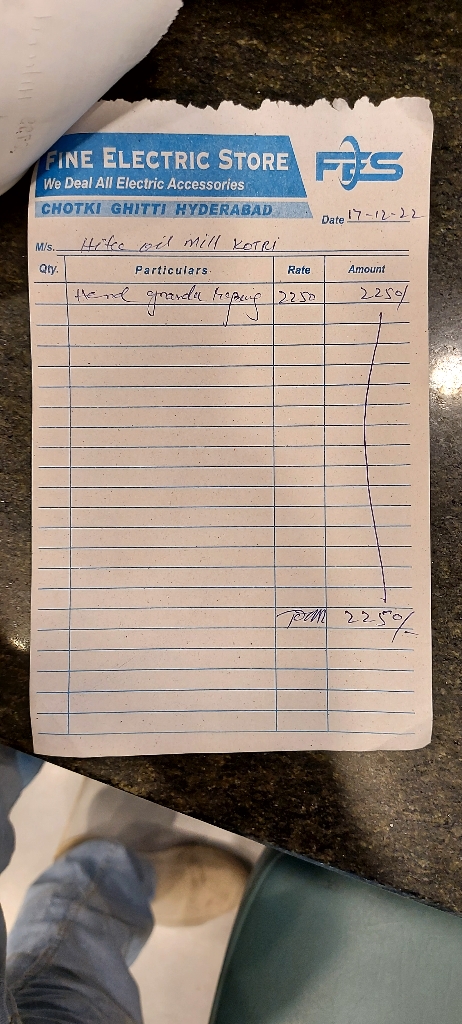 FINE ELECTRIC STORE
FES
We Deal All Electric Accessories
CHOTKI GHITTI HYDERABAD
Date 17-12-22
M/s. Hitec oil Mill KOTRI
Qty. Particulars Rate Amount
Hand 2250 2250/
Total 2250/-